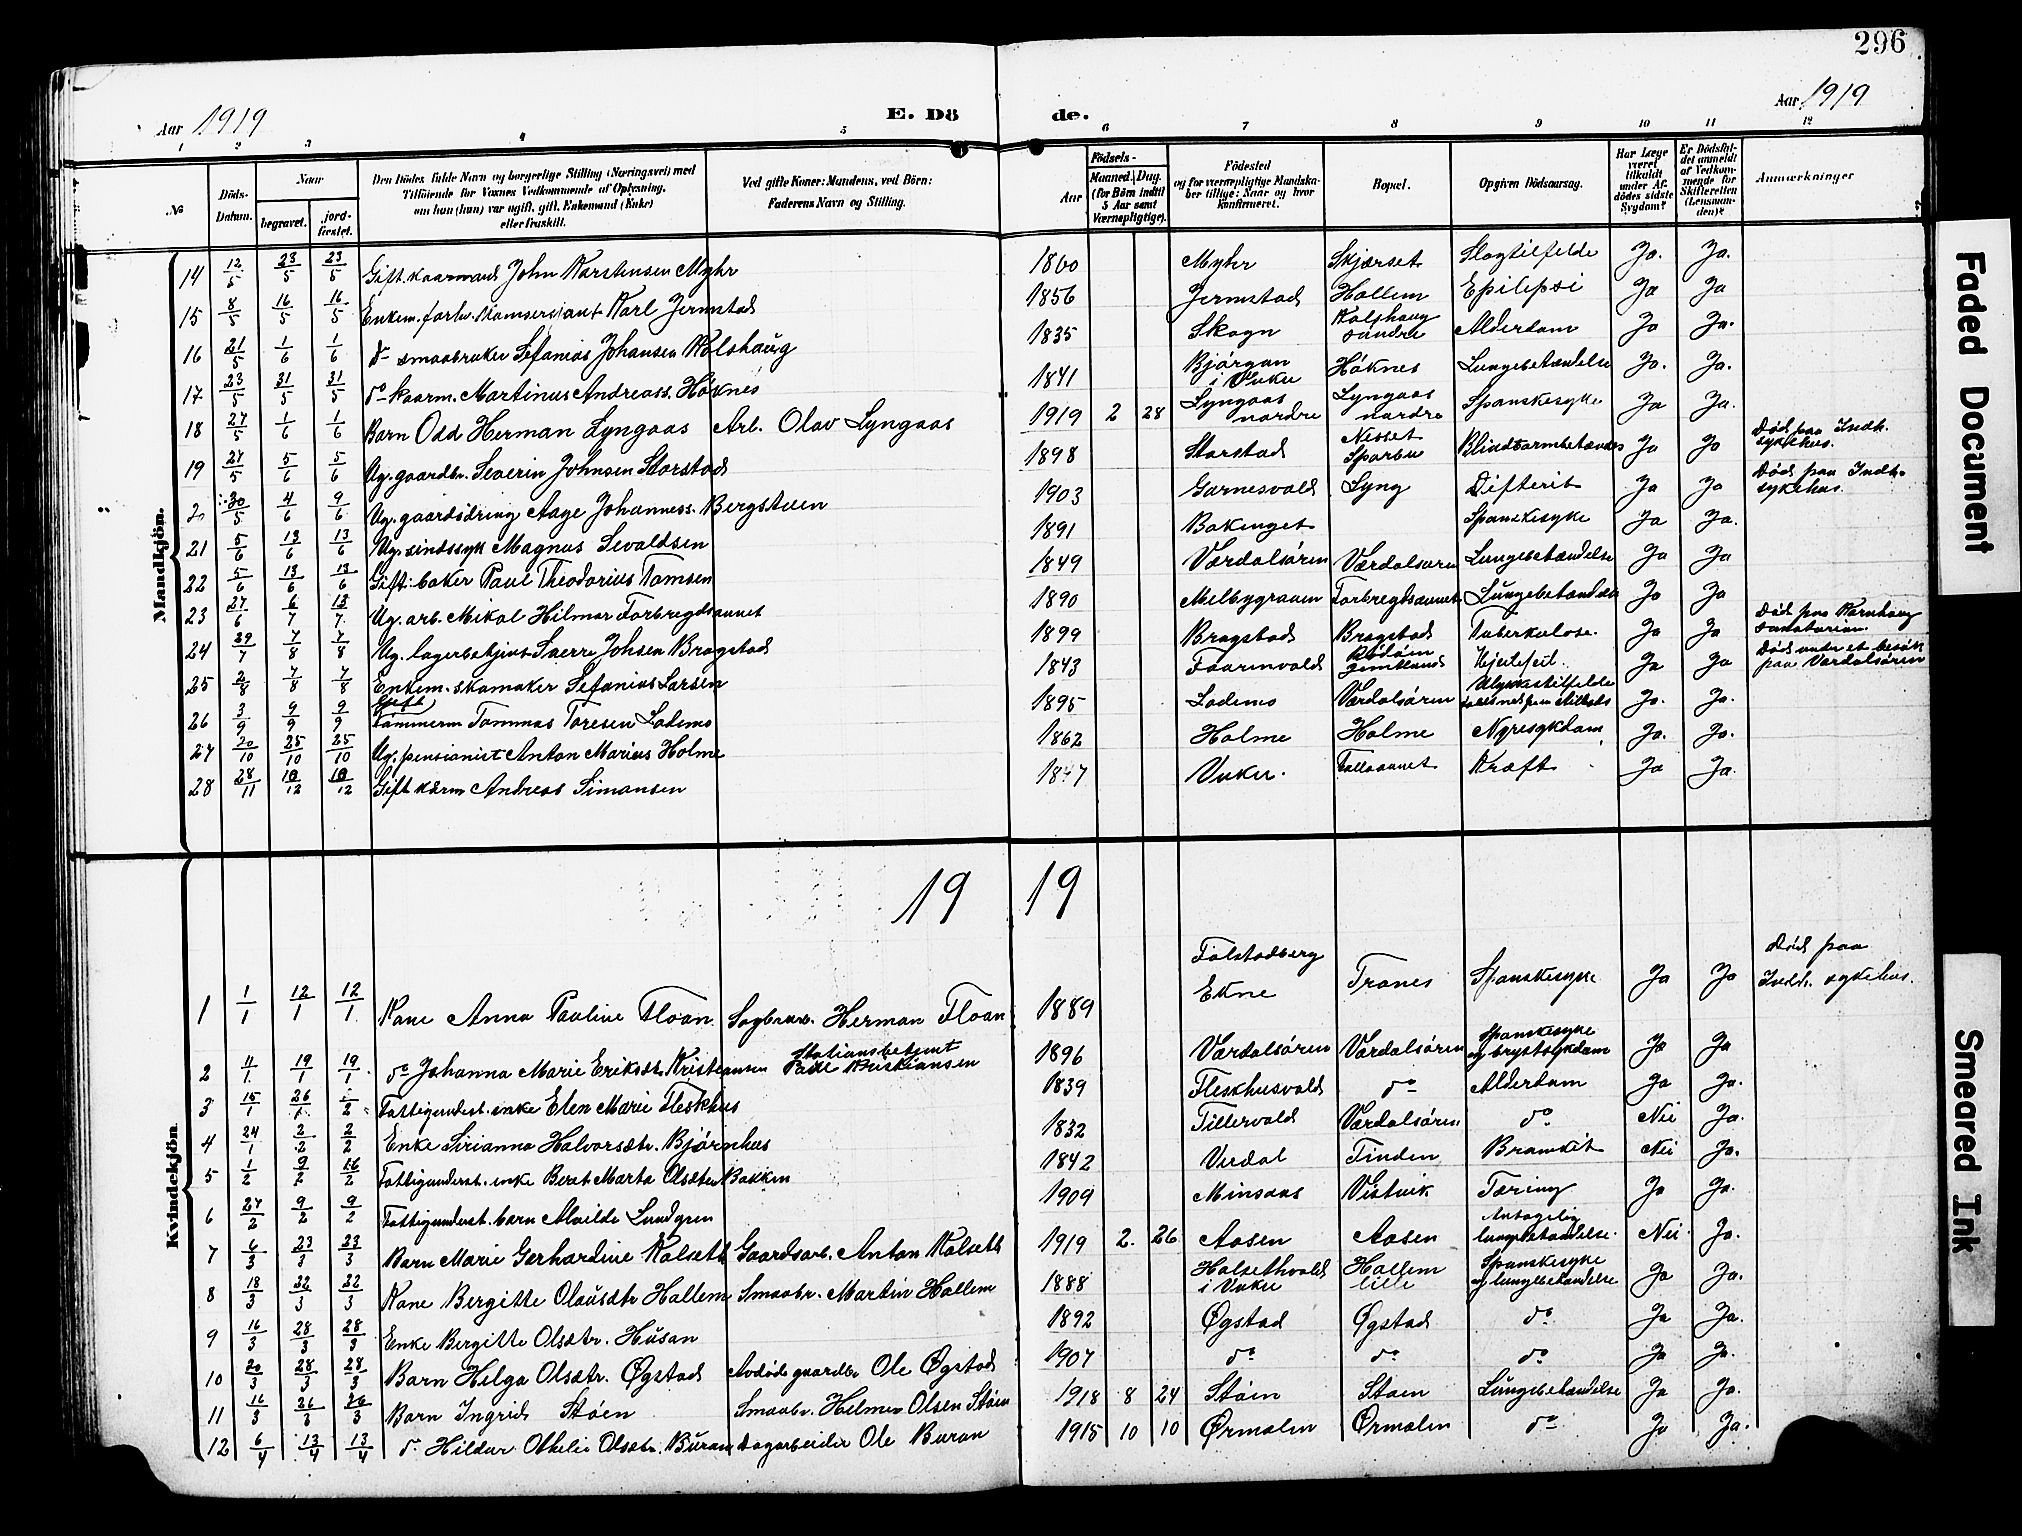 296
Aar 1919 E. Dö de. Aar 1919
1 2 3 4 5 6 7 8 9 10 11 12
No
Döds-Datum.
Naar
begravet.
jord-fæstet.
Den Dödes fulde Navn og borgerlige Stilling (Næringsvei) med
Tilföiende for Voxnes Vedkommende af Oplysning,
om han (hun) var ugift, gift, Enkemand (Enke)
eller fraskilt.
Ved gifte Koner: Mandens, ved Börn:
Faderens Navn og Stilling.
Födsels-
Aar
Maaned. Dag.
(for Börn indtil
5 Aar samt
Værnepligtige).
Födested
og for værnepligtige Mandska-
ber tillige: Naar og hvor
konfirmeret.
Bopæl.
Opgiven Dödsaarsag.
Har Læge
været
tilkaldt
under Af-
dödes sidste
Sygdom?
Er Dödsfal-
det anmeldt
af Vedkom-
mende for
Skifteretten
(Lensman-
den)?
Anmærkninger
Mandkjön.
14 12/5 23/5 23/5 Gift kaarmand John Karstensen Myhr 1860 Myhr Skjærset Slagtilfelde Ja. Ja.
15 8/5 16/5 16/5 Enkem. forhv. Karl Jermstad 1856 Jermstad Hallem Epilepsi Ja Ja
16 21/5 1/6 1/6 do smaabruker Sefanias Johansen Kolshaug 1835 Skogn Kolshaug søndre Alderdom Ja Ja.
17 23/5 31/5 31/5 do kaarm. Martinus Andreass. Høknes 1841 Bjørgan i Vuku Høknes Lungebetændelse Ja. Ja.
18 27/5 1/6 1/6 Barn Odd Herman Lyngaas Arb. Olav Lyngaas 1919 2 28 Lyngaas nordre Lyngaas nordre Spanskesyke Ja Ja.
19 27/5 5/6 5/6 Ug. gaardbr. Severin Johnsen Storstad 1898 Storstad Nesset Sparbu Blindtarmbetændels Ja Ja Død paa Indh. sykehus.
20 30/5 4/6 9/6 Ug. gaardsdreng Aage Johanness. Bergsteen 1903 Garnesvald Lyng Difterit Ja Ja Død paa Indh. sykehus.
21 5/6 13/6 13/6 Ug. sindssyk Magnus Sevaldsen 1891 Bakenget Spanskesyke Ja Ja.
22 5/6 13/6 13/6 Gift. baker Paul Theodorius Tomsen 1849 Værdalsøren Værdalsøren Lungebetændelse Ja Ja
23 27/6 6/7 13/7 Ug. arb. Mikal Hilmar Forbregdsaunet 1890 Melbygrauen Forbregdsaunet Lungebetændelse Ja Ja
24 29/7 7/8 7/8 Ug. lagerbetjent Sverre Johsen Bragstad 1899 Bragstad Bragstad Tuberkulose. Ja Ja Død paa Kornhaug sanatorium.
25 2/8 7/8 7/8 Enkem. skomaker Sefanias Larsen 1843 Faarenvald Rødøen Jemtland Hjertefeil. Ja Ja Død under et besøk paa Værdalsøren
26 3/9 9/9 9/9 Gift Tømmerm Tommas Toresen Lodemo 1895 Lodemo Værdalsøren Ulykkestilfelde Ja. Ja.
27 20/10 25/10 25/10 Ug. pensionist Anton Marius Holme 1862 Holme Holme Nyresykdom Ja. Ja.
28 28/11 10/12 10/12 Gift kårm Andreas Simonsen 1847 Vuku. Kræft Ja Ja.
Kvindekjön
19 19
1 1/1 12/1 12/1 Kone Anna Pauline Floan Sagbruksarb. Herman Floan 1889 Falstadberg Ekne Trones Spanskesyke Ja Ja Død paa Indh. sykehus.
2 11/1 19/1 19/1 do Johanna Marie Eriksdtr Kristiansen Stationsbetjent Paul Kristiansen 1896 Værdalsøren Værdalsøren Spanskesyke og brystsykdom Ja Ja
3 15/1 26/1 Fattigunderst. enke Elen Marie Fleskhus 1839 Fleskhusvald do Alderdom Ja Ja.
4 24/1 2/2 2/2 Enke Sirianna Halvorsdtr. Bjørnhus 1832 Tillervald Værdalsøren do Nei Ja.
5 1/2 9/2 16/2 Fattigunderst. enke Beret Marta Olsdtr Bakken 1842 Verdal Tinden Bronkit Nei Ja.
6 27/2 9/2 9/2 Fattigunderst. barn Alvilde Lundgren 1909 Minsaas Vistvik Tæring Ja Ja.
7 6/3 23/3 23/3 Barn Marie Gerhardine Kolseth Gaardsarb. Anton Kolseth 1919 2. 26 Aasen Aasen Antagelig lungebetændelse. Nei. Ja.
8 18/3 22/3 22/3 Kone Bergitte Olausdtr Hallem Smaabr. Martin Hallem 1888 Halsethvald i Vuku Hallem lille Spanskesyke og lungebetændelse Ja Ja.
9 16/3 28/3 28/3 Enke Bergitte Olsdtr. Husan 1892 Øgstad Øgstad do Ja Ja.
10 20/3 28/3 28/3 Barn Helga Olsdtr. Øgstad Avdøde gaardbr Ole Øgstad 1907 do do do Ja Ja.
11 16/3 26/3 26/3 Barn Ingrid Støen Smaabr. Helmer Olsen Støen 1918 8 24 Støen Støen Lungebetændelse Ja Ja.
12 6/4 13/4 13/4 do Hildur Othelie Olsdtr. Buran Dagarbeider Ole Buran 1915 10 10 Ørmelen Ørmelen do Ja Ja.
Faded Document
Smeared Ink